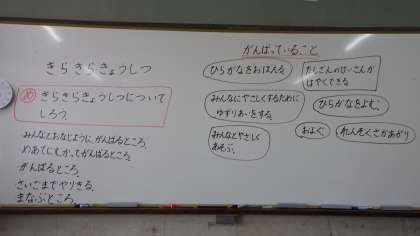 きらきらきょうしつ
め きらきらきょうしつについて
しろう。
みんなとおなじように、がんばるところ。
めあてにむかってがんばるところ。
がんばるところ。
さいごまでやりきる。
まなぶところ。
がんばっていること
ひらがなをおぼえる
たしざんのけいさんが
はやくできる
みんなにやさしくするために
ゆずりあいをする。
ひらがなをよむ。
みんなとやさしく
あそぶ。
およぐ。
れんぞくさかあがり